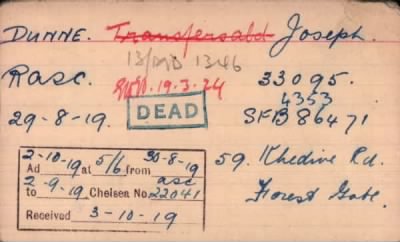 DUNNE. Transfersald Joseph.
13/MB 1346
Rasc. 19.3.24 33095.
4353
29-8-19. DEAD SFB 86471
2-10-19 5/6 30-8-19 59. Khedive Rd.
Ad at from
asc
2-9-19 22041 Forest Gate.
to Chelsea No.
Received 3-10-19